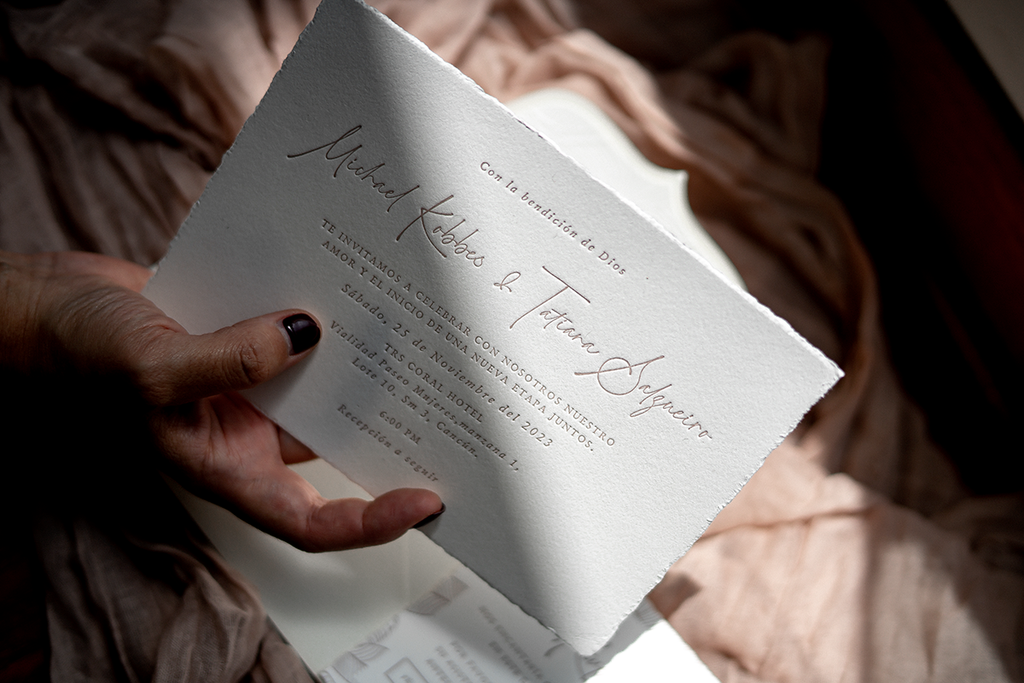 Con la bendición de Dios
Michael Kobbes & Tatiana Salgueiro
TE INVITAMOS A CELEBRAR CON NOSOTROS NUESTRO
AMOR Y EL INICIO DE UNA NUEVA ETAPA JUNTOS.
Sábado, 25 de Noviembre del 2023
TRS CORAL HOTEL
Vialidad Paseo Mujeres, manzana 1,
Lote 10. Sm 3, Cancún.
6:00 PM
Recepción a seguir